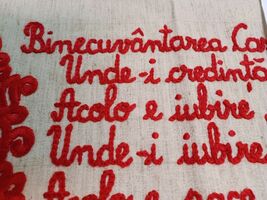 Binecuvântarea Ca
Unde-i credință
Acolo e iubire,
Unde-i iubire,
Acolo e pace